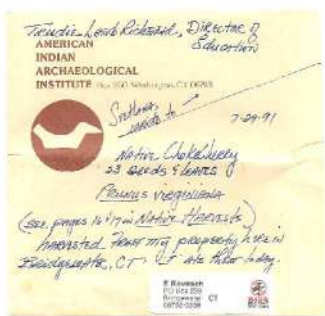 Trudie Lamb Richmond, Director of
Education
AMERICAN
INDIAN
ARCHAEOLOGICAL
INSTITUTE Box 260 Washington, CT 06793
7-29-91
Native Chokecherry
23 seeds & leaves
Prunus virginiana
(see pages 16 & 17 in Native Harvests)
harvested from my property here in
Bridgewater, CT I ate them today.
PO Box 209
Bridgewater CT